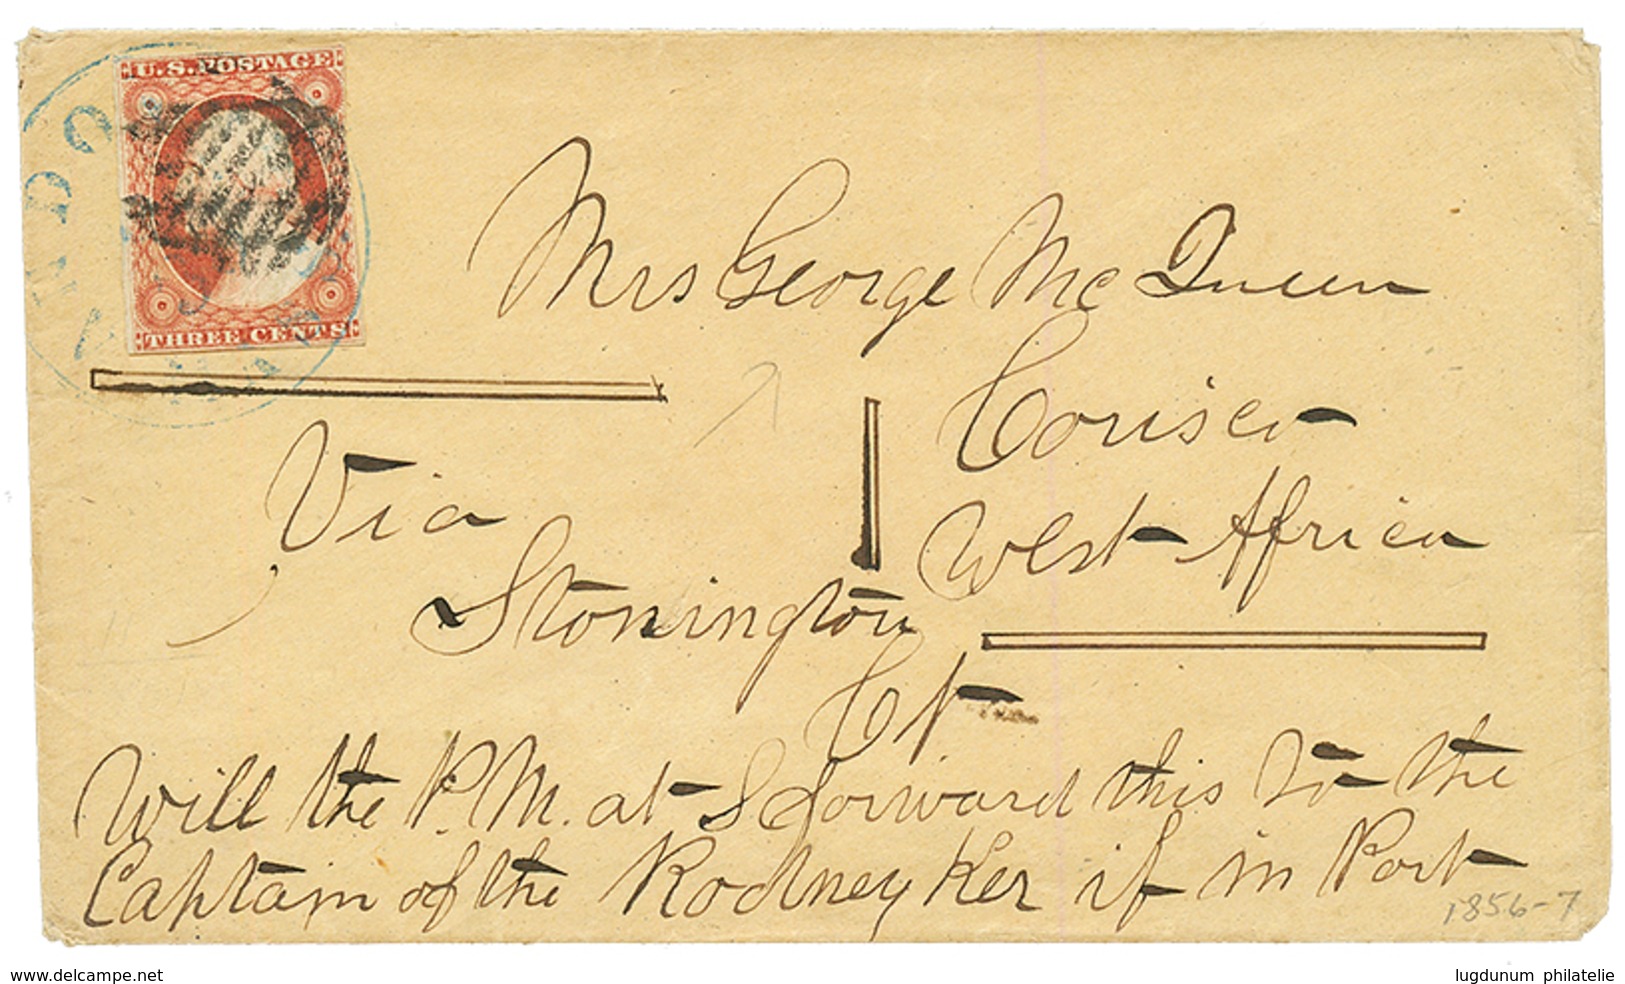 U.S. POSTAGE
THREE CENTS
Mrs George Mc Queen
Corisco
West Africa
Via
Stonington
Ct
Will the P.M. at S forward this to the
Captain of the Rodney Ker if in Port
1856-7
www.delcampe.net
lugdunum philatelie